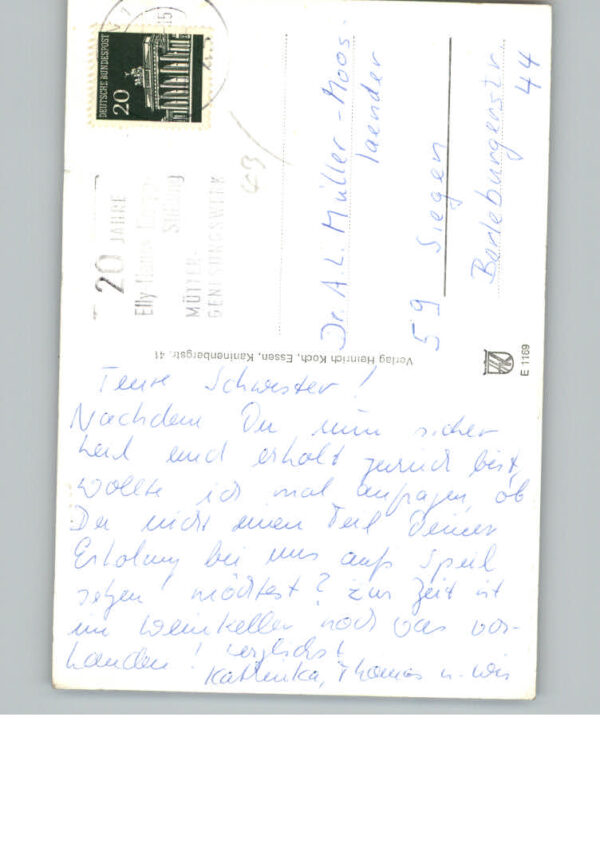 DEUTSCHE BUNDESPOST
20
15
20 JAHRE
Elly
MÜTTER-
GENESUNGSWERK
Dr. A. L. Müller-Moos-
laender
59 Siegen
Berleburgerstr
44
Verlag Heinrich Koch, Essen, Kaninenbergstr. 41
E 1169
Teure Schwester!
Nachdem Du nun sicher
heil und erholt zurück bist,
wollte ich mal anfragen, ob
Du nicht einen Teil Deiner
Erholung bei uns aufs Spiel
setzen möchtest? Zur Zeit ist
im Weinkeller noch was vor-
handen! Herzlichst
Kathinka, Thomas u. Wir